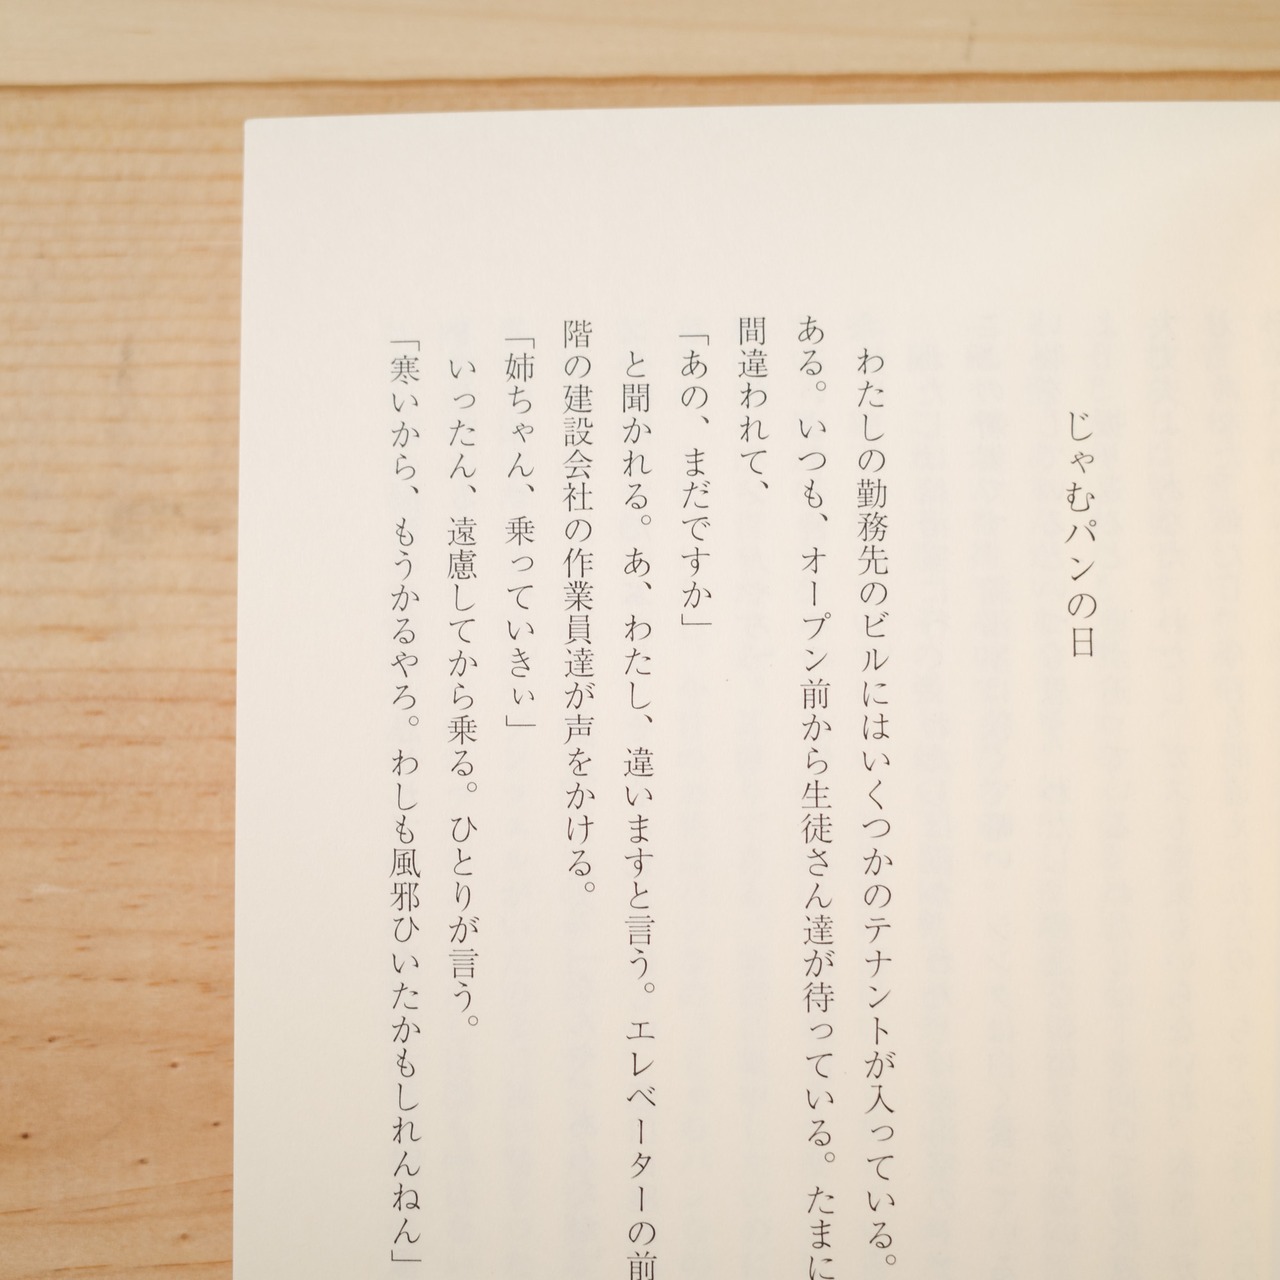 じゃむパンの日
わたしの勤務先のビルにはいくつかのテナントが入っている。
ある。いつも、オープン前から生徒さん達が待っている。たまに
間違われて、
「あの、まだですか」
と聞かれる。あ、わたし、違いますと言う。エレベーターの前
階の建設会社の作業員達が声をかける。
「姉ちゃん、乗っていきぃ」
いったん、遠慮してから乗る。ひとりが言う。
「寒いから、もうかるやろ。わしも風邪ひいたかもしれんねん」